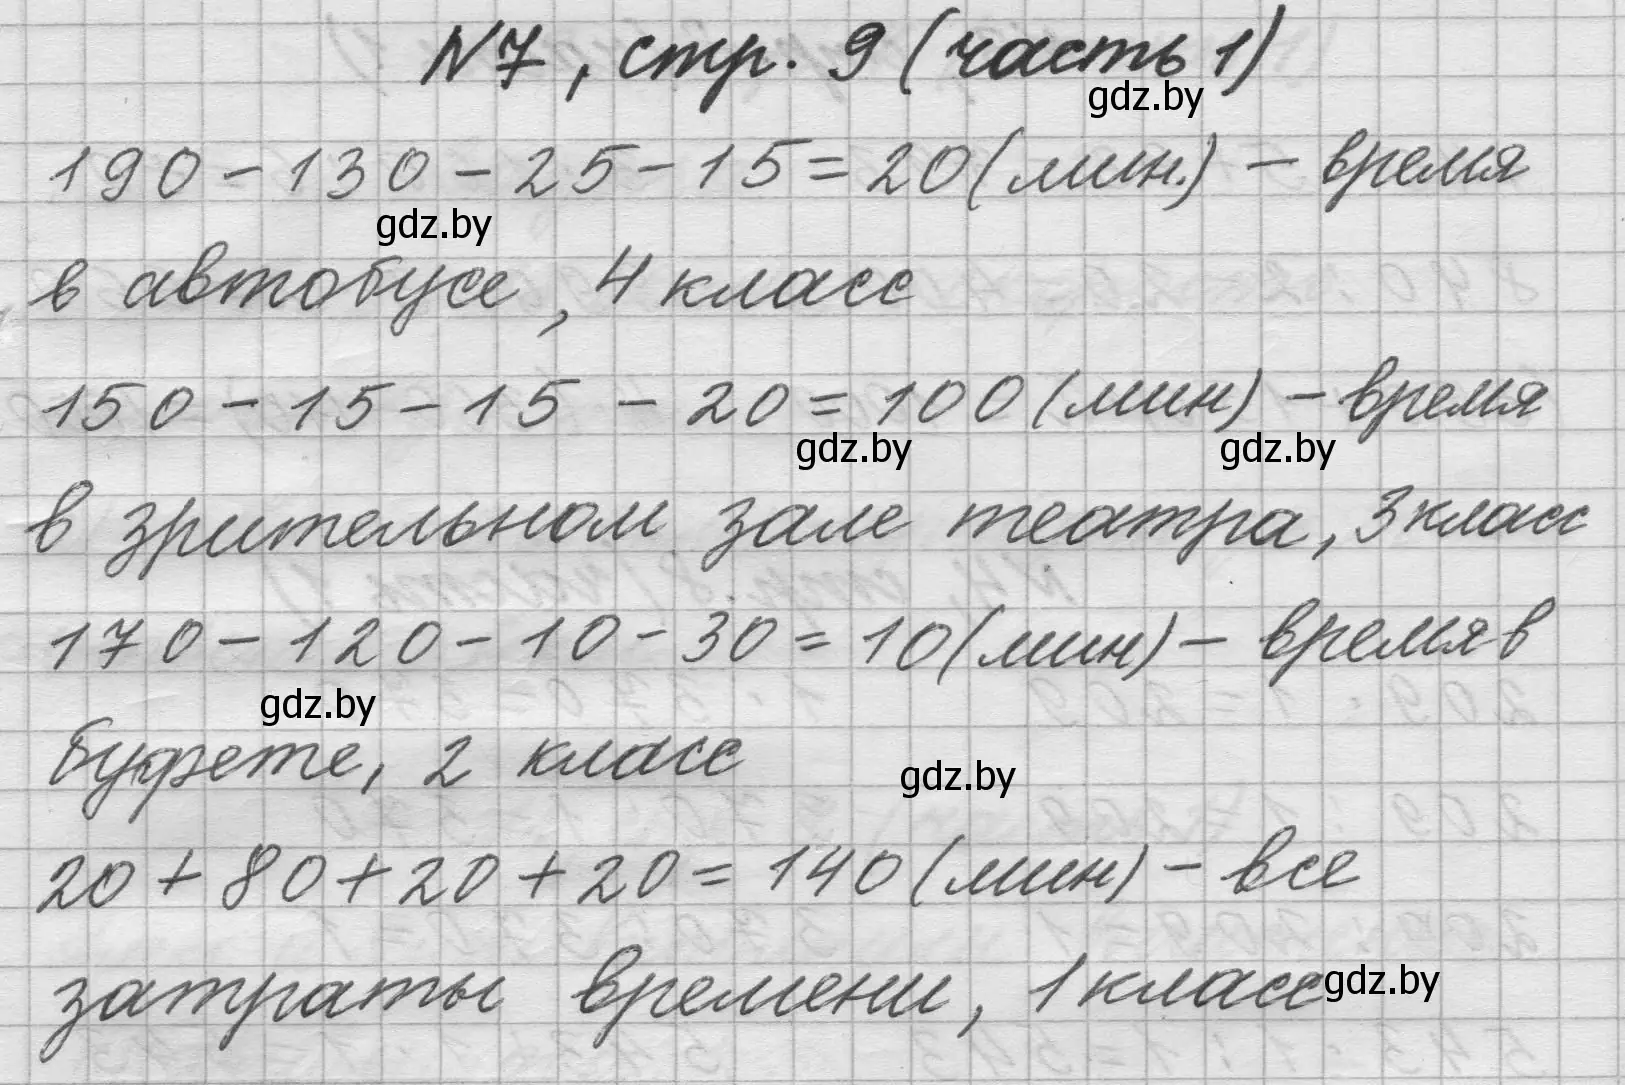 №7, стр. 9 (часть 1)
gdz.by
190 - 130 - 25 - 15 = 20 (мин.) - время
gdz.by
в автобусе, 4 класс
150 - 15 - 15 - 20 = 100 (мин) - время
gdz.by gdz.by
в зрительном зале театра, 3 класс
170 - 120 - 10 - 30 = 10 (мин) - время в
gdz.by
буфете, 2 класс
gdz.by
20 + 80 + 20 + 20 = 140 (мин) - все
затраты времени, 1 класс
gdz.by